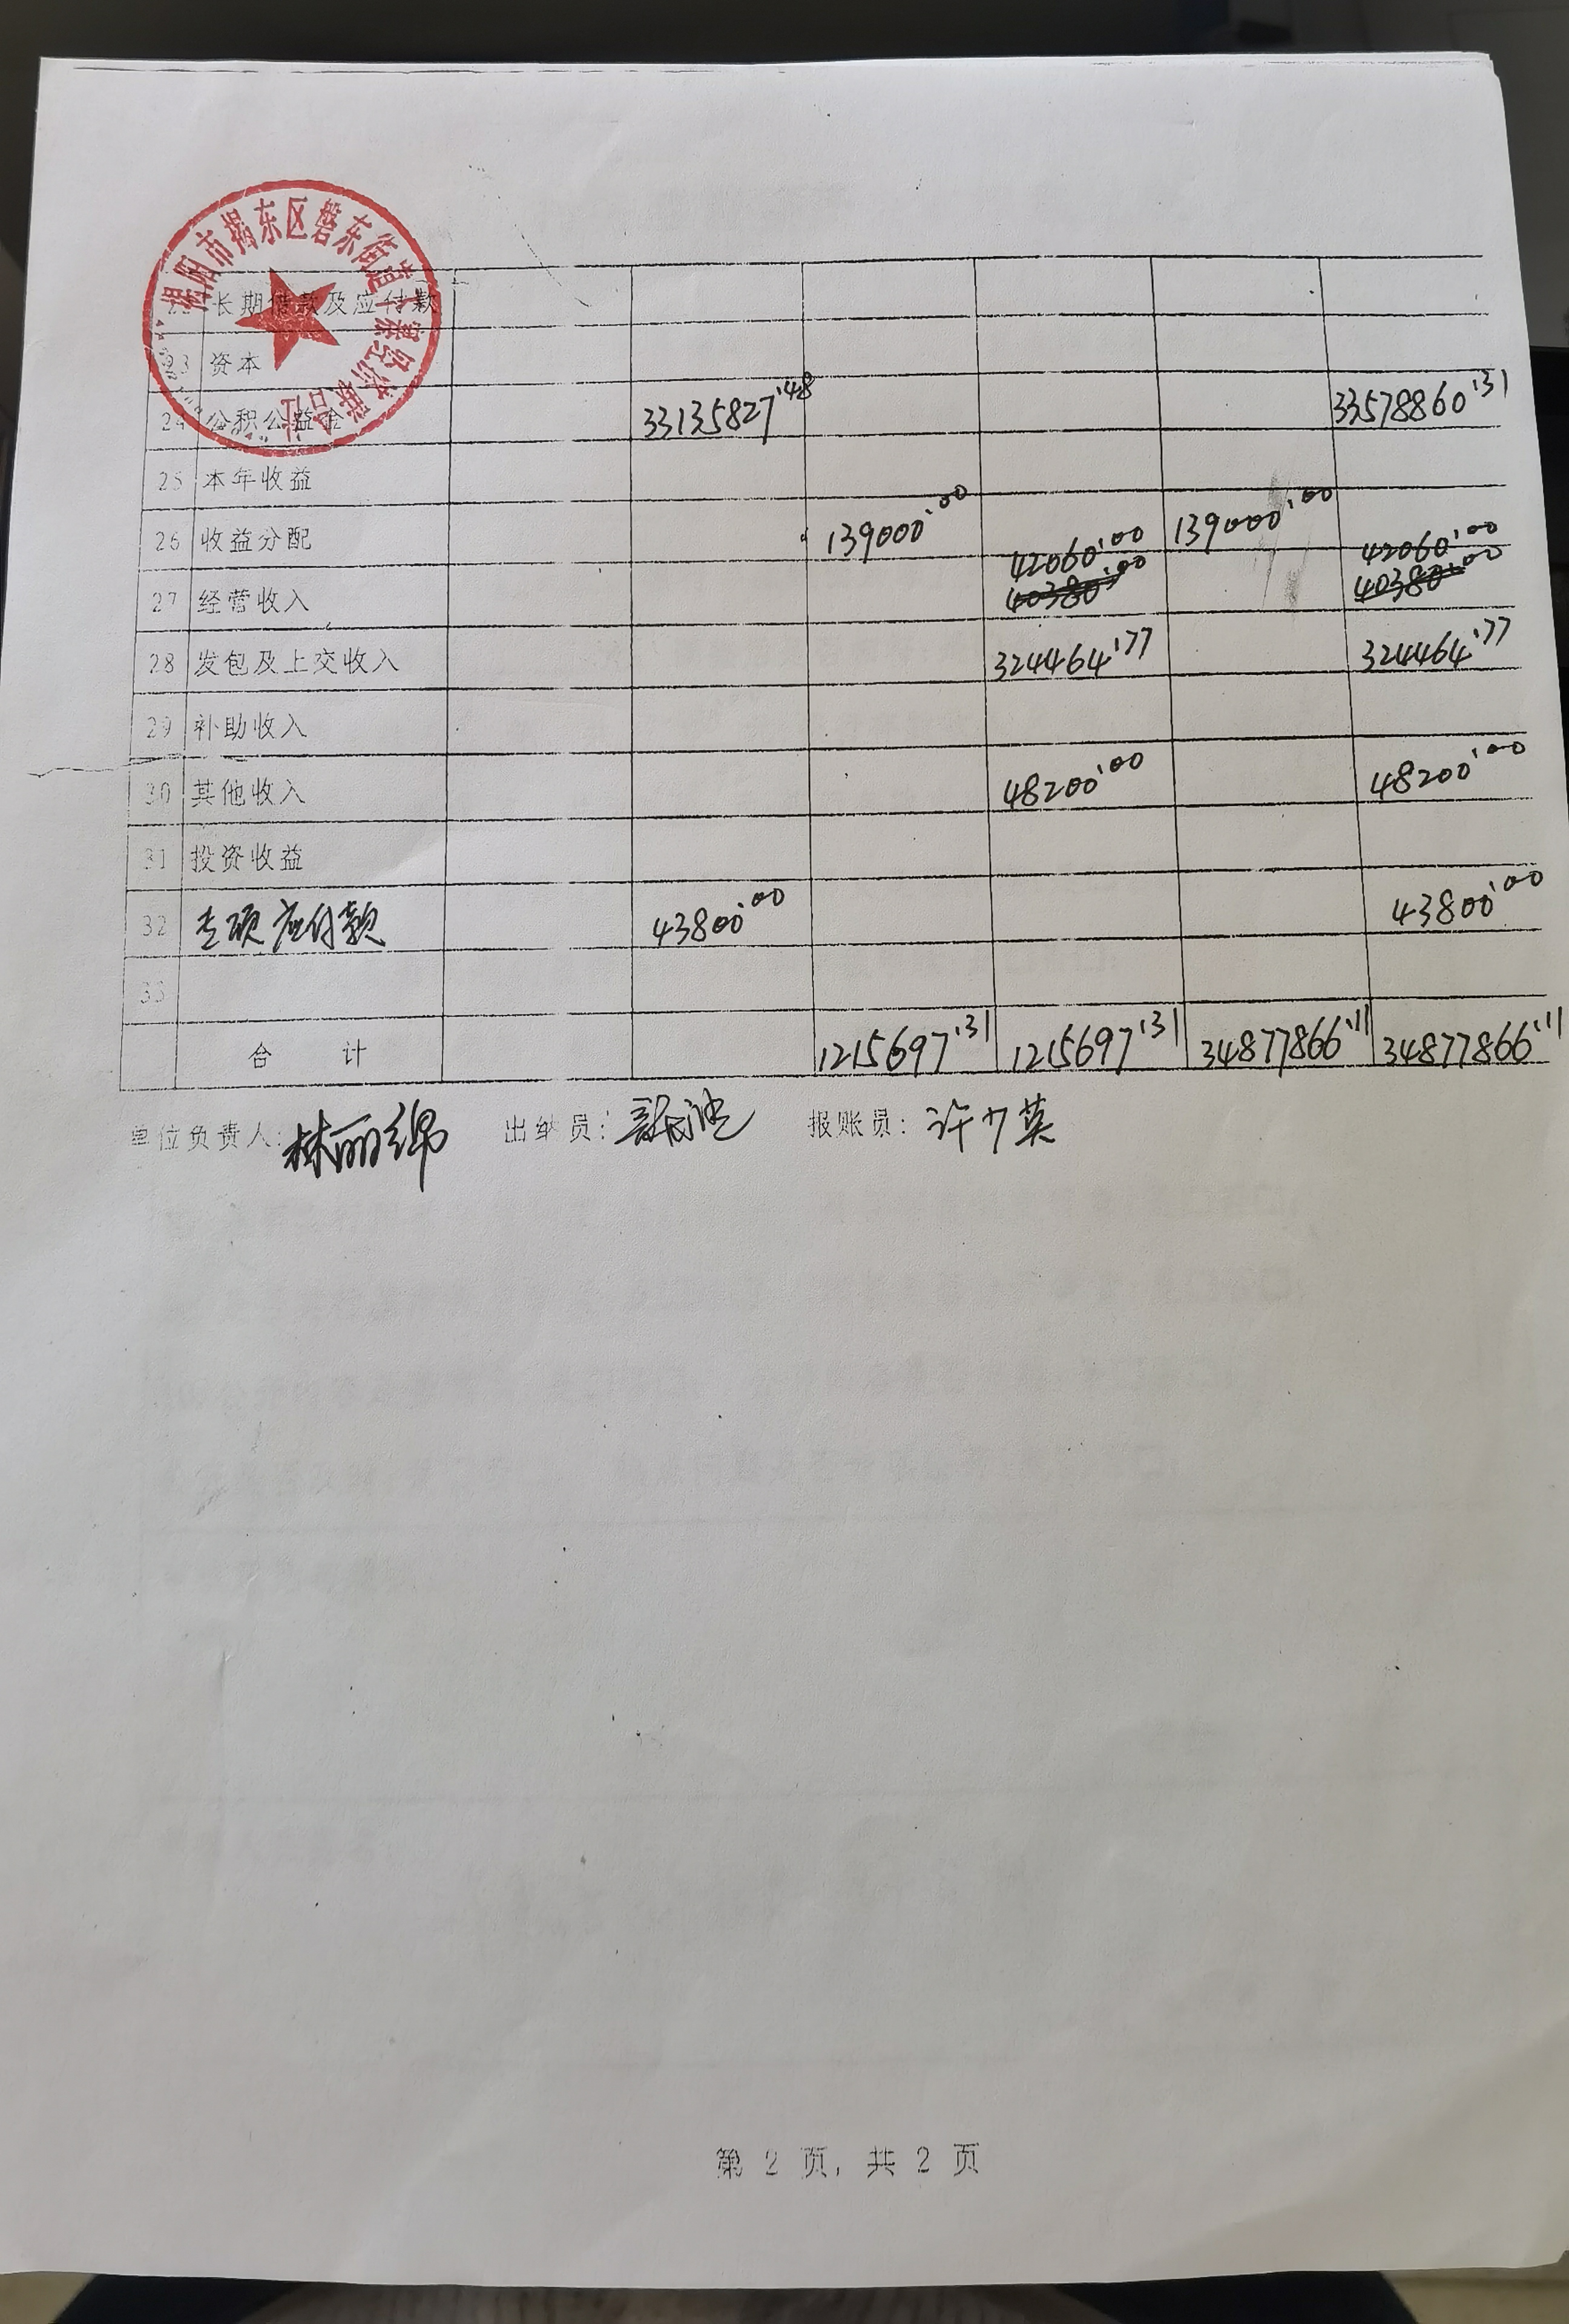 揭阳市揭东区磐东街道
经济联合社
22 长期借款及应付款
23 资本
24 公积公益金 33135827.48 33578860.31
25 本年收益
26 收益分配 139000.00 139000.00
42060.00 42060.00
27 经营收入 40380.00 40380.00
28 发包及上交收入 324464.77 324464.77
29 补助收入
30 其他收入 48200.00 48200.00
31 投资收益
32 专项应付款 43800.00 43800.00
33
合 计 1215697.31 1215697.31 34877866.11 34877866.11
单位负责人: 林丽绵 出纳员: 报账员: 许少英
第 2 页, 共 2 页